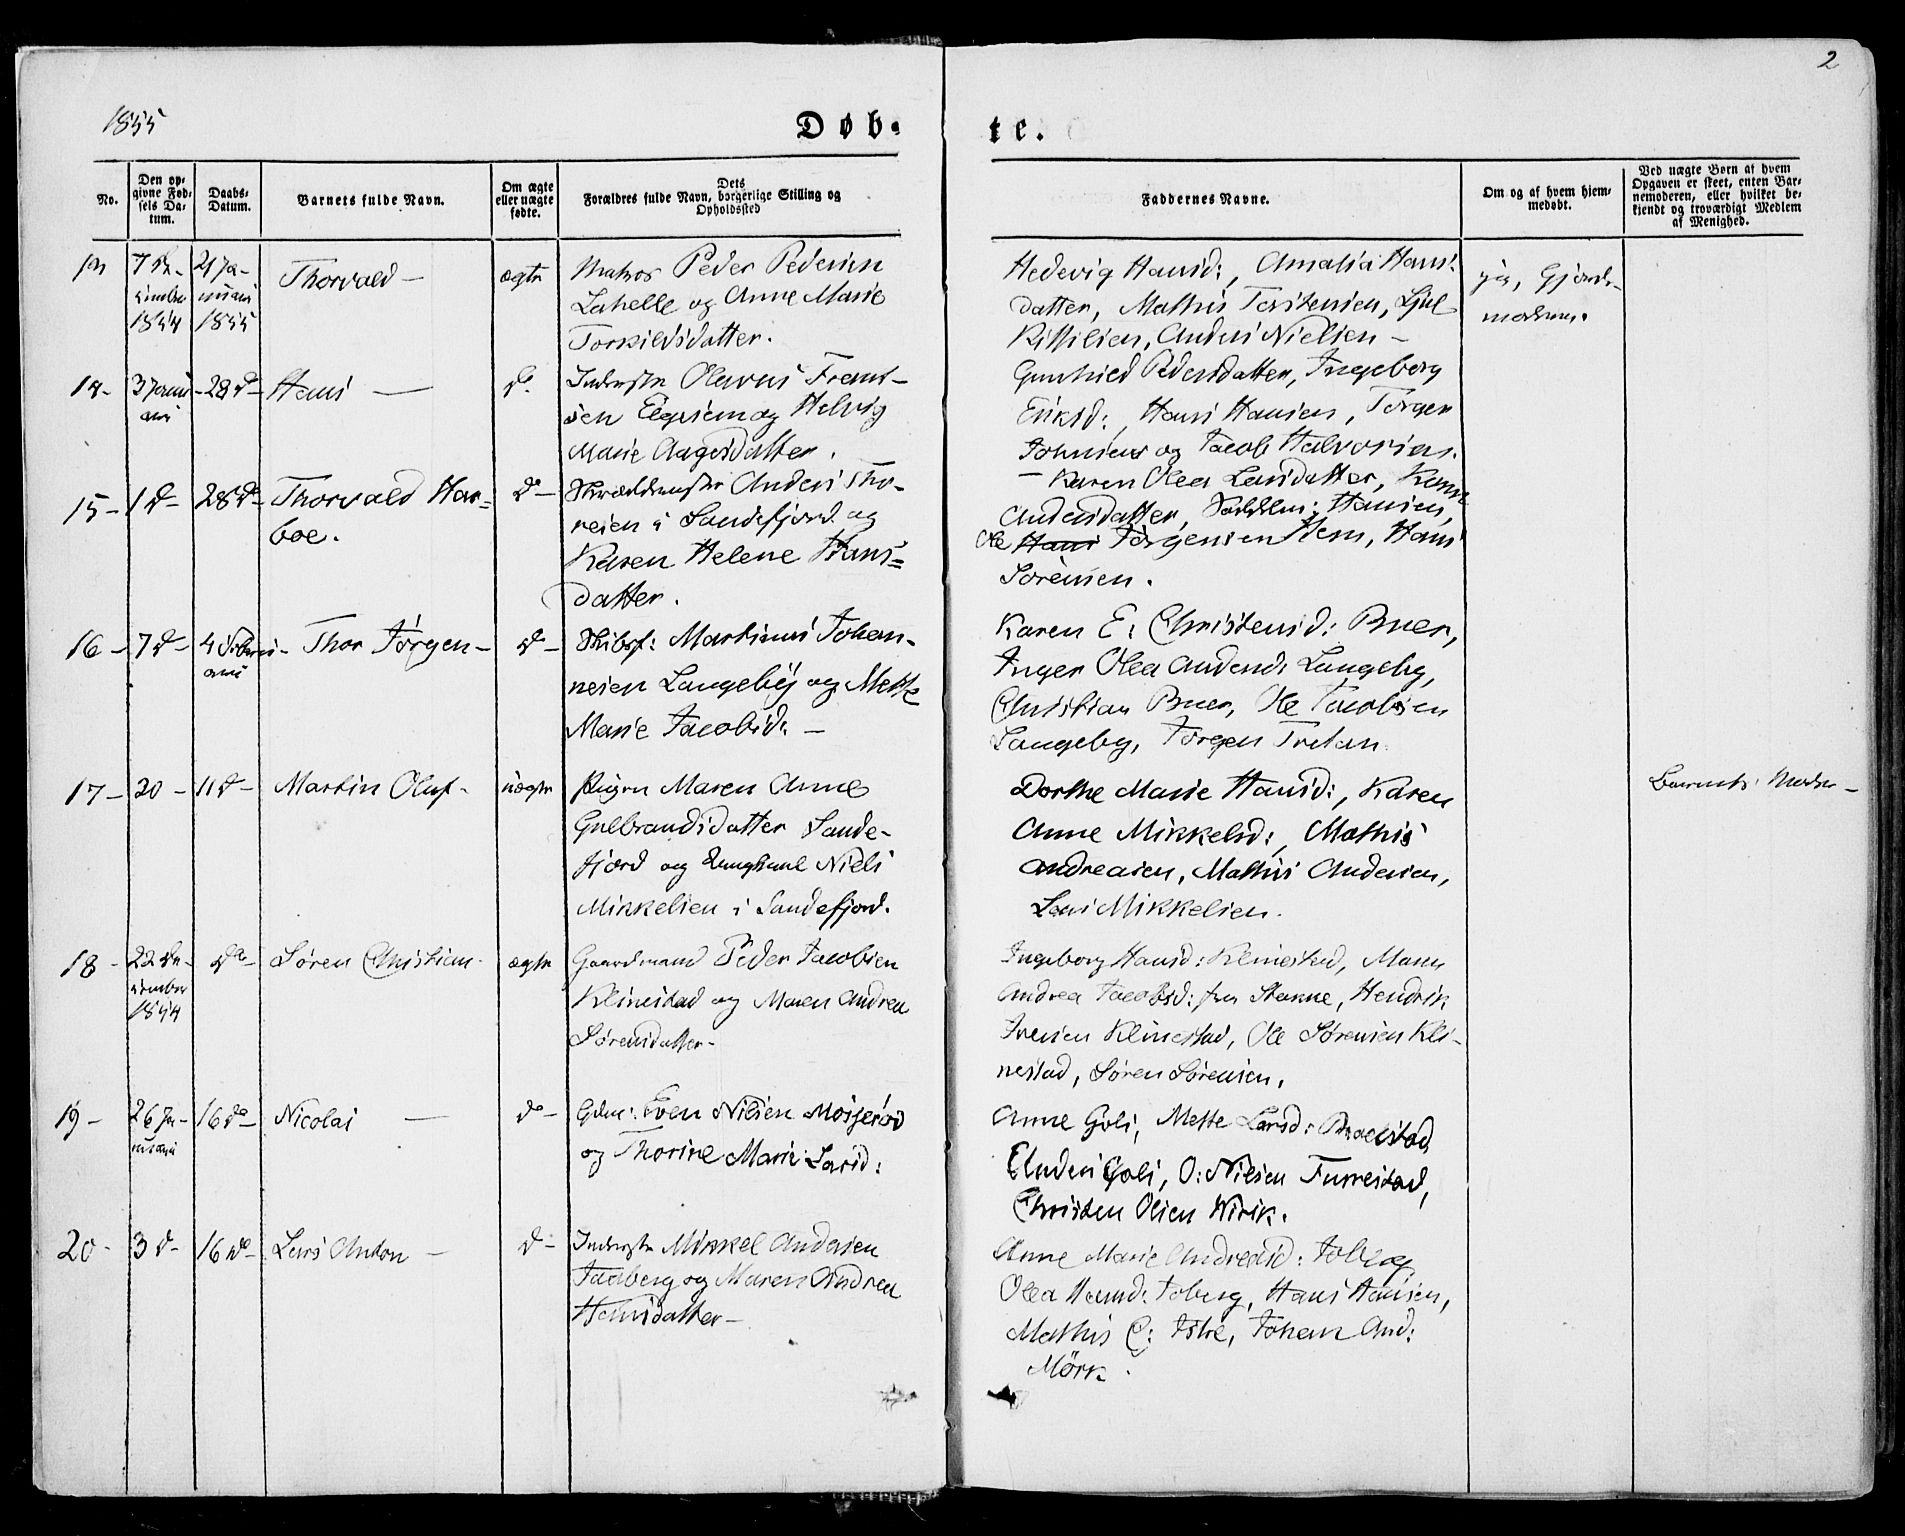 2
1855
Døb-
te.
No.
Den op-
givne Fød-
sels Da-
tum.
Daabs-
Datum.
Barnets fulde Navn.
Om ægte
eller uægte
fødte.
Dets
Forældres fulde Navn, borgerlige Stilling og
Opholdssted
Faddernes Navne.
Om og af hvem hjem-
medøbt.
Ved uægte Børn af hvem
Opgaven er skeet, enten Bar-
nemoderen, eller hvilket be-
kjendt og troværdigt Medlem
af Menighed.
13
7 De-
cember
1854
21 Ja-
nuari
1855
Thorvald -
ægte
Matros Peder Pedersen
Lahelle og Anne Marie
Torkildsdatter.
Hedevig Hansd:, Amalia Hans-
datter, Mathis Torstensen,
Anders Nielsen -
ja, Gjorde-
moderen.
14-
3 Janu
ari
-28 d-
Hans -
d.
Inderste Olavus Frant-
sen og Helvig
Marie Aagesdatter.
Gunhild Pedersdatter, Ingeborg
Eriksd:, Hans Hansen, Jørgen
Johnsen og Jacob Halvorsen.
15-
1 d-
28 d-
Thorvald Har=
boe.
d-
Skræddermester Anders Tho-
resen i Sandefjord og
Karen Helene Frans=
datter.
- Karen Olea Larsdatter, Karen
Andersdatter, Hansen,
Ole Hans Jørgensen Hem, Hans
Sørensen.
16-
7 d-
4 Febru-
ari
Thor Jørgen-
d-
Skibsf: Martinus Johan-
nesen Langeby og Mette
Marie Jacobsd: -
Karen E: Christensd: Bruer,
Inger Olea Andersd: Langeby,
Christian Bruer, Ole Jacobsen
Langeby, Jørgen
17-
20-
11 d-
Martin Oluf-
uægte
Pigen Maren Anne
Gulbrandsdatter Sande-
fjord og Ungkarl Niels
Mikkelsen i Sandefjord.
Dorthe Marie Hansd:, Karen
Anne Mikkelsd:, Mathis
Andreasen, Mathis Andersen,
Lars Mikkelsen.
Barnets Moder -
18-
22 De-
cember
1854
do
Søren Christian-
ægte
Gaardmand Peder Jacobsen
Klinestad og Maren Andrea
Sørensdatter-
Ingeborg Hansd: Klinestad, Maren
Andrea Jacobsd: fra Stakne, Hendrik
Iversen Klinestad, Ole Sørensen Kli-
nestad, Søren Sørensen.
19-
26 Ja-
nuari
16 d-
Nicolai -
d-
Gdm: Even Nilsen Moijerød
og Thorine Marie Larsd:
Anne Goli, Mette Larsd:
Anders Goli, O: Nilsen Furrestad,
Christen Olsen Virik.
20-
3 d-
16 d-
Lars Anton -
d-
Inderste Mikkel Andersen
Jaaberg og Maren Andrea
Hansdatter-
Anne Marie Andreasd: Joberg,
Olea Hansd: Joberg, Hans Hansen,
Mathis C: Istre, Johan And:
Mörk.